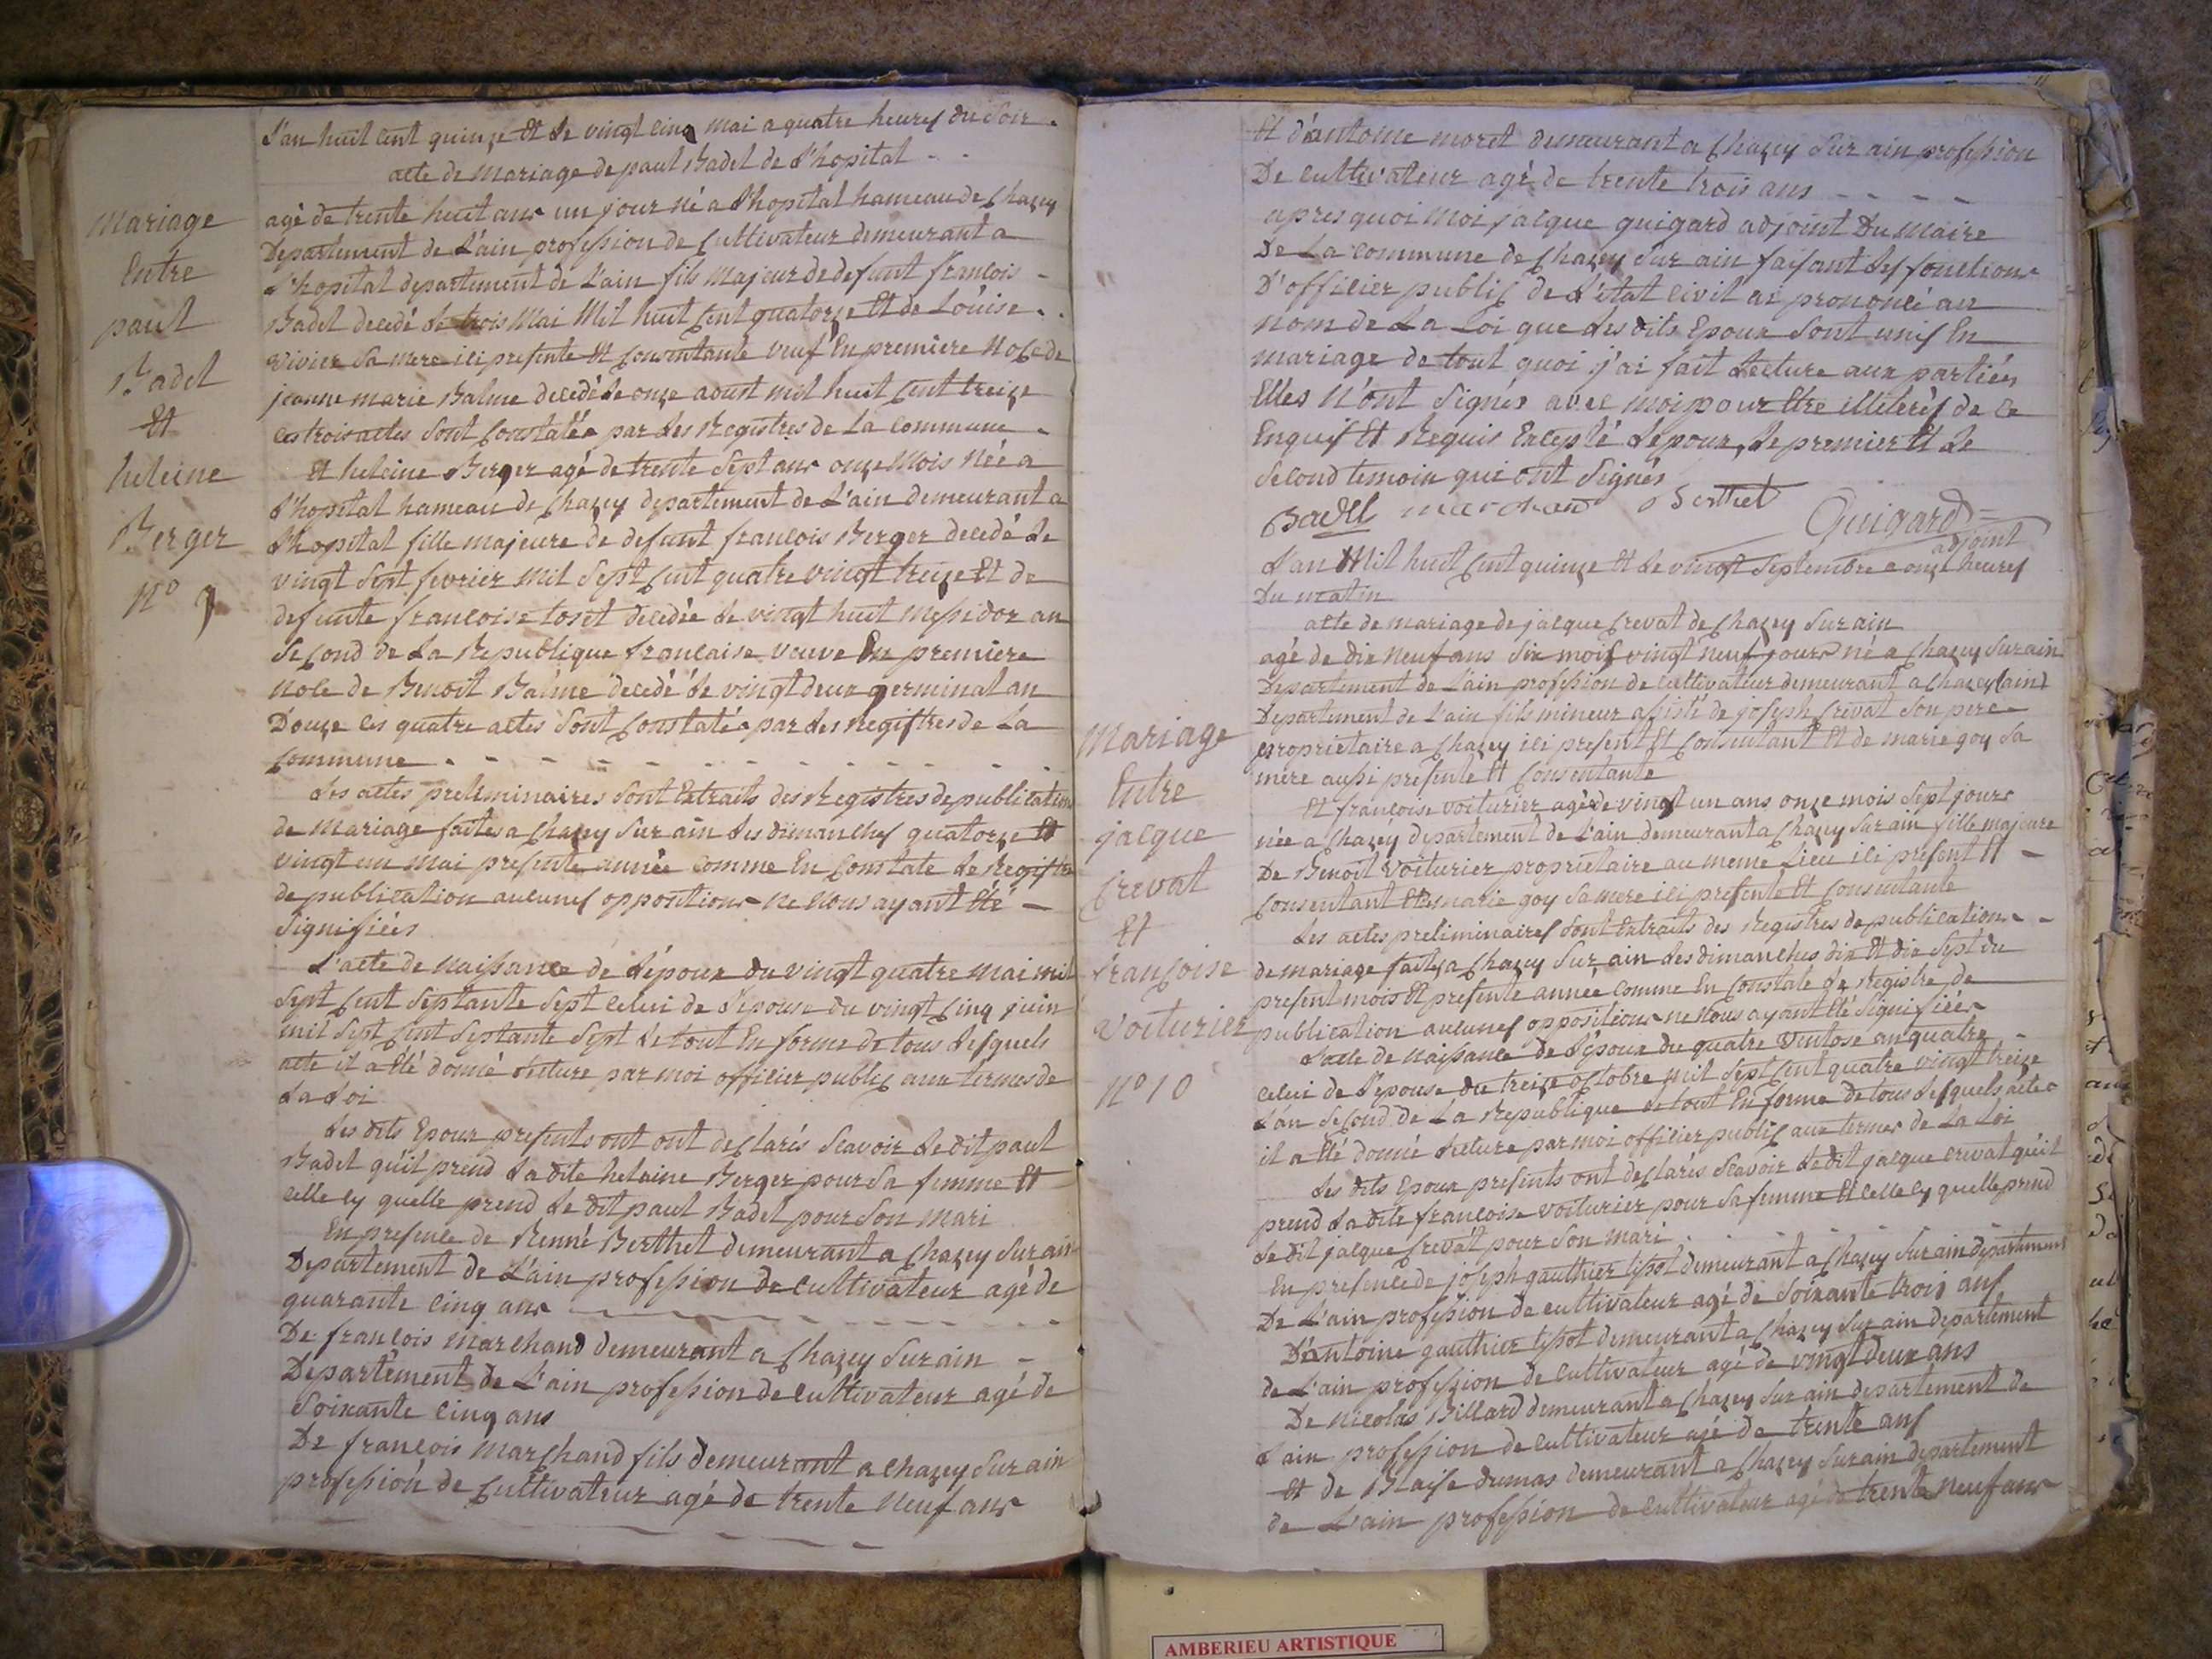 L'an huit cent quinze Et Le vingt cinq mai a quatre heures du Soir
acte de Mariage de paul Badel de L'hopital
Mariage
Entre
paul
Badel
Et
heleine
Berger
N° 9
agé de trente huit ans un jour né a L'hopital hameau de Chazey
Departement de L'ain profession de Cultivateur demeurant a
L'hopital departement de L'ain fils Majeur de defunt francois
Badel decedé Le trois Mai Mil huit Cent quatorze Et de Loüise
vivier Sa mere ici presente Et Consentante veuf En premiere Noce de
jeanne marie Balme decedé Le onze aoust mil huit Cent treize
ces trois actes Sont Constatée par Les Registres de La commune
Et heleine Berger agé de trente Sept ans onze Mois Née a
L'hopital hameau de Chazey departement de L'ain demeurant a
L'hopital fille majeure de defunt francois Berger decedé Le
vingt Sept fevrier Mil Sept Cent quatre vingt treize Et de
defunte francoise toset decedée Le vingt huit Messidor an
Second de La Republique francaise veuve En premiere
Noce de Benoit Balme decedé Le vingt deux germinal an
Douze Ces quatre actes Sont Constatée par Les Registres de La
Commune
Les actes preliminaires Sont Extraits des Registres de publication
de Mariage faites a Chazey Sur ain Les dimanches quatorze Et
vingt un mai presente année comme En Constate Le Registre
de publication aucunes oppositions ne Nous ayant Eté
Signifiées
L'acte de Naissance de L'époux du vingt quatre Mai mil
Sept Cent Septante Sept Celui de L'epouse du vingt Cinq juin
mil Sept Cent Septante Sept Le tout En forme de tous Lesquels
acte il a Eté donné Lecture par moi officier public aux termes de
La Loi
Les dits Epoux presents ont ont declarés Scavoir Le dit paul
Badel qu'il prend La dite helaine Berger pour Sa femme Et
celle cy quelle prend Le dit paul Badel pour Son Mari
En presence de Renné Berthet demeurant a Chazey Sur ain
Departement de L'ain profession de cultivateur agé de
quarante cinq ans
De francois Marchand demeurant a Chazey Sur ain
Departement de L'ain profession de cultivateur agé de
Soixante cinq ans
De francois Marchand fils demeurant a Chazey Sur ain
profession de Cultivateur agé de trente Neuf ans
Et d'antoine moret demeurant a Chazey Sur ain profession
De cultivateur agé de trente trois ans
apres quoi Moi jacque guigard adjoint Du Maire
De La commune de Chazey Sur ain faisant Les fonctions
D'officier public de L'état civil ai prononcé au
Nom de La Loi que Les dits Epoux Sont unis En
Mariage de tout quoi j'ai fait Lecture aux partiés
Elles N'ont Signés avec moi pour Etre illeterés de ce
Enquis Et Requis Excepté L'epoux, Le premier Et Le
Second temoin qui ont Signés
Badel marchand Berthet Guigard
adjoint
L'an Mil huit Cent quinze Et Le vingt Septembre a onze heures
Du matin
acte de mariage de jacque Crevat de Chazey Sur ain
Mariage
Entre
jacque
Crevat
Et
francoise
Voiturier
N° 10
agé de dix Neuf ans Six mois vingt neuf jours né a Chazey Sur ain
Departement de L'ain profession de cultivateur demeurant a Chazey (ain)
Departement de L'ain fils mineur assisté de joseph Crevat Son pere
proprietaire a Chazey ici present Et Consentant Et de marie goy Sa
mere aussi presente Et Consentante
Et francoise voiturier agée de vingt un ans onze mois Sept jours
née a Chazey departement de L'ain demeurant a Chazey Sur ain fille majeure
De Benoit Voiturier proprietaire au meme Lieu ici present Et
Consentant Et de marie goy Sa mere ici presente Et Consentante
Les actes preliminaires Sont Extraits des Registres de publications
de mariage faites a Chazey Sur ain Les dimanches dix Et dix Sept du
present mois Et presente année comme En Constate Le Registre de
publication aucunes oppositions ne Nous ayant Eté Signifiées
L'acte de Naissance de L'époux du quatre Ventose an quatre
celui de L'epouse du treize octobre mil Sept Cent quatre vingt treize
L'an Second de La Republique Le tout En forme de tous Lesquels actes
il a Eté donné Lecture par moi officier public aux termes de La Loi
Les dits Epoux presents ont declarés Scavoir Le dit jacque crevat qu'il
prend La dite francoise voiturier pour Sa femme Et celle cy quelle prend
Le dit jacque Crevat pour Son mari
En presence de joseph gauthier tissot demeurant a Chazey Sur ain departement
De L'ain profession de cultivateur agé de Soixante trois ans
D'antoine gauthier tissot demeurant a Chazey Sur ain departement
de L'ain profession de cultivateur agé de vingt deux ans
De Nicolas Billard demeurant a Chazey Sur ain departement de
L'ain profession de cultivateur agé de trente ans
Et de Blaise dumas demeurant a Chazey Sur ain departement
de L'ain profession de cultivateur agé de trente Neuf ans
AMBERIEU ARTISTIQUE